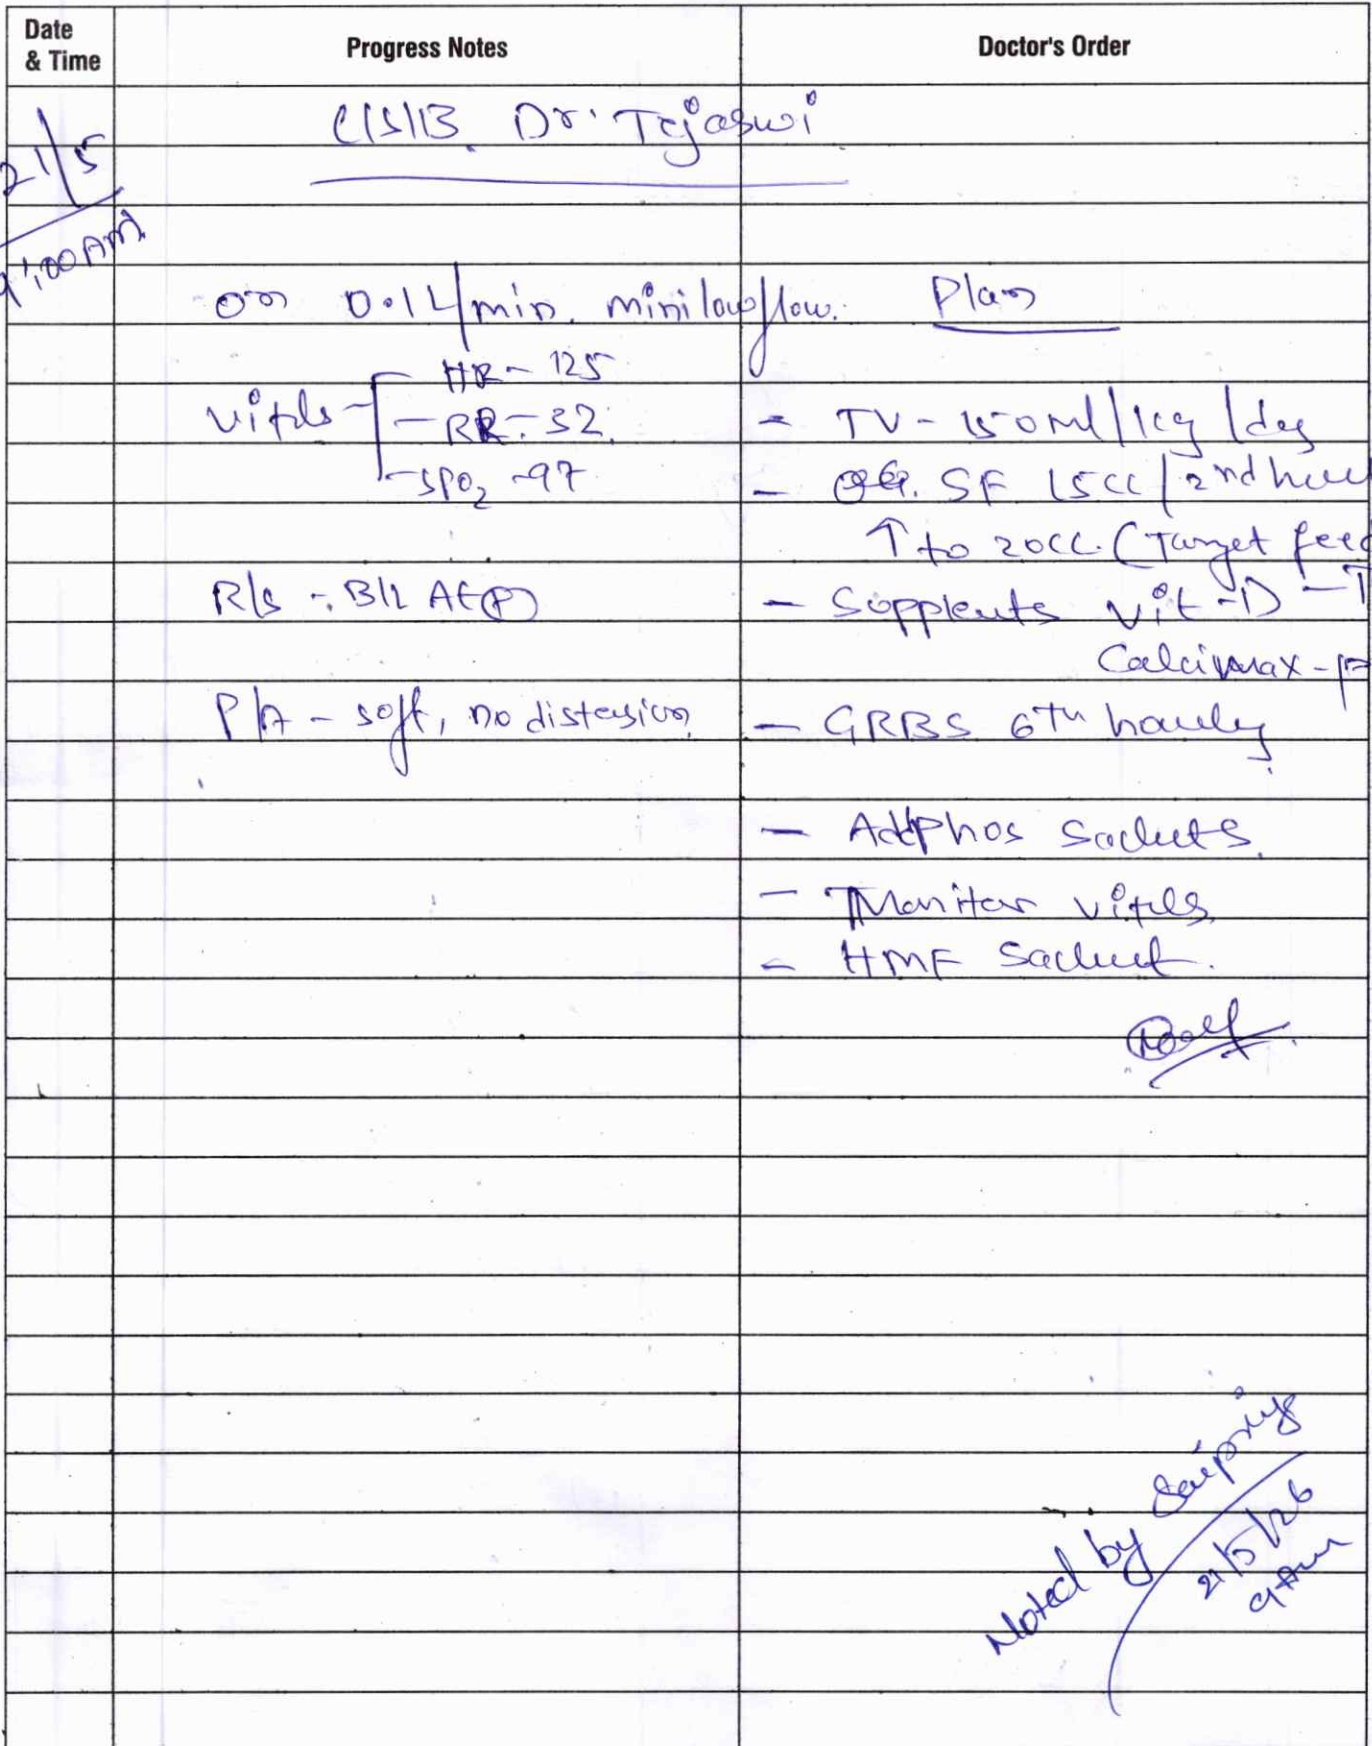 Date & Time
Progress Notes
Doctor's Order
C/S/B. Dr. Tejaswi
21/5
9:00AM
on 0.1L/min. mini low flow.
Plan
Vitals
HR - 125
RR - 32
SPO2 - 97
- TV - 150ml/kg/day
- OG. SF 15cc/2nd
↑ to 20cc. (Target feed
R/s - B/L AE(P)
- Supplents Vit-D
Calcimax-P
P/A - soft, no distension
- GRBS 6th hourly
- AddPhos Sachets.
- Monitor vitals
- HMF Sachet.
Noted by Saipriya
21/5/26
9Am